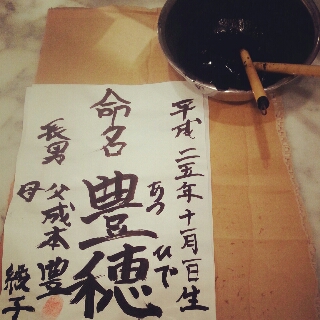 平成二五年十一月一日生
命名
豊穂
あつひで
長男
父成本豊
母
綾子